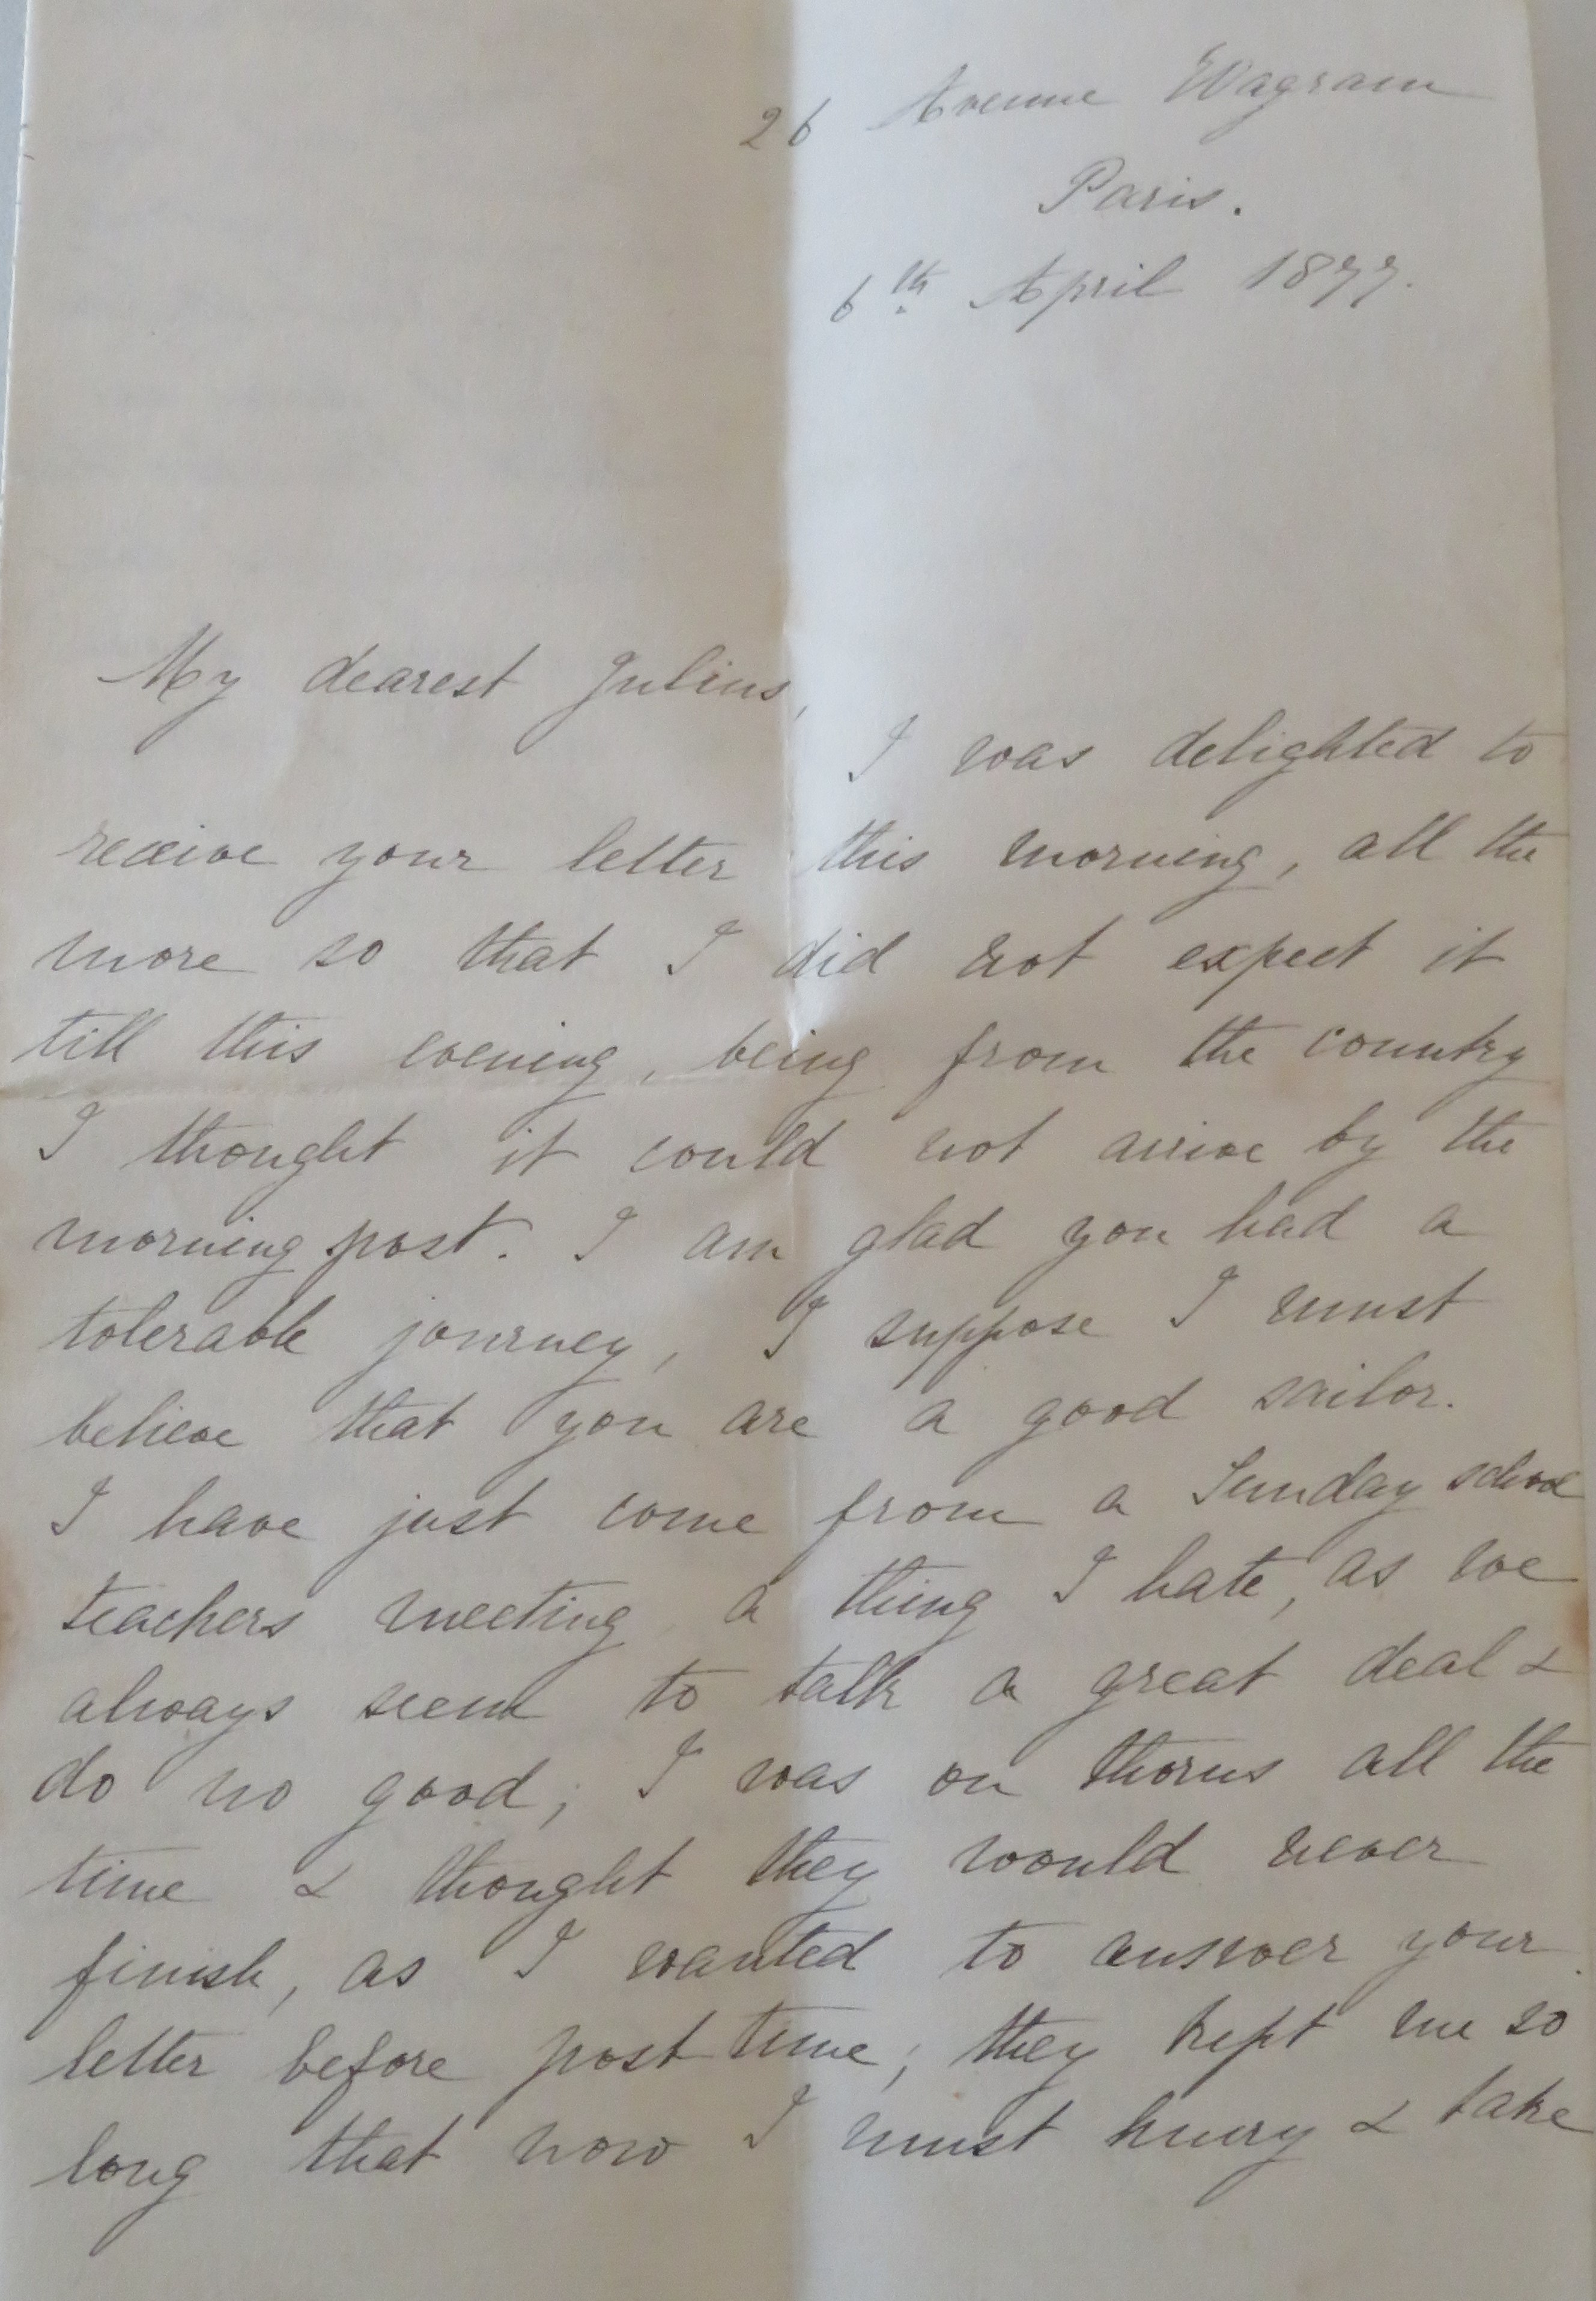 26 Avenue Wagram
Paris.
6th April 1877.
My dearest Julius,
I was delighted to
receive your letter this morning, all the
more so that I did not expect it
till this evening, being from the country
I thought it could not arrive by the
morning post. I am glad you had a
tolerable journey, I suppose I must
believe that you are a good sailor.
I have just come from a Sunday school
teachers meeting a thing I hate, as we
always seem to talk a great deal &
do no good; I was on thorns all the
time & thought they would never
finish, as I wanted to answer your
letter before post time; they kept me so
long that now I must hurry & take